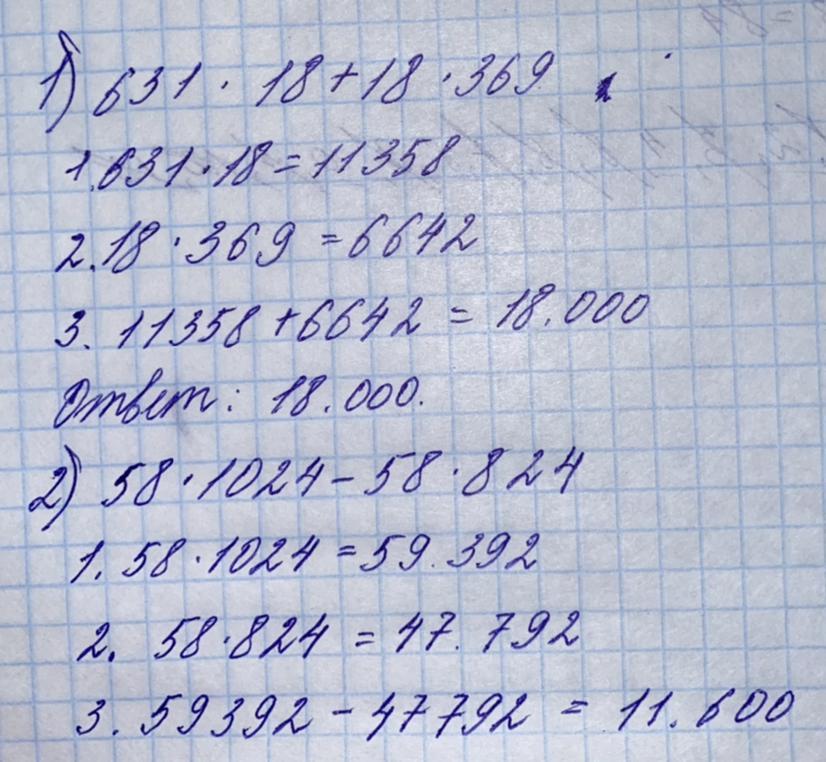 1) 631 · 18 + 18 · 369
1. 631 · 18 = 11358
2. 18 · 369 = 6642
3. 11358 + 6642 = 18.000
Ответ: 18.000.
2) 58 · 1024 - 58 · 824
1. 58 · 1024 = 59.392
2. 58 · 824 = 47.792
3. 59392 - 47792 = 11.600